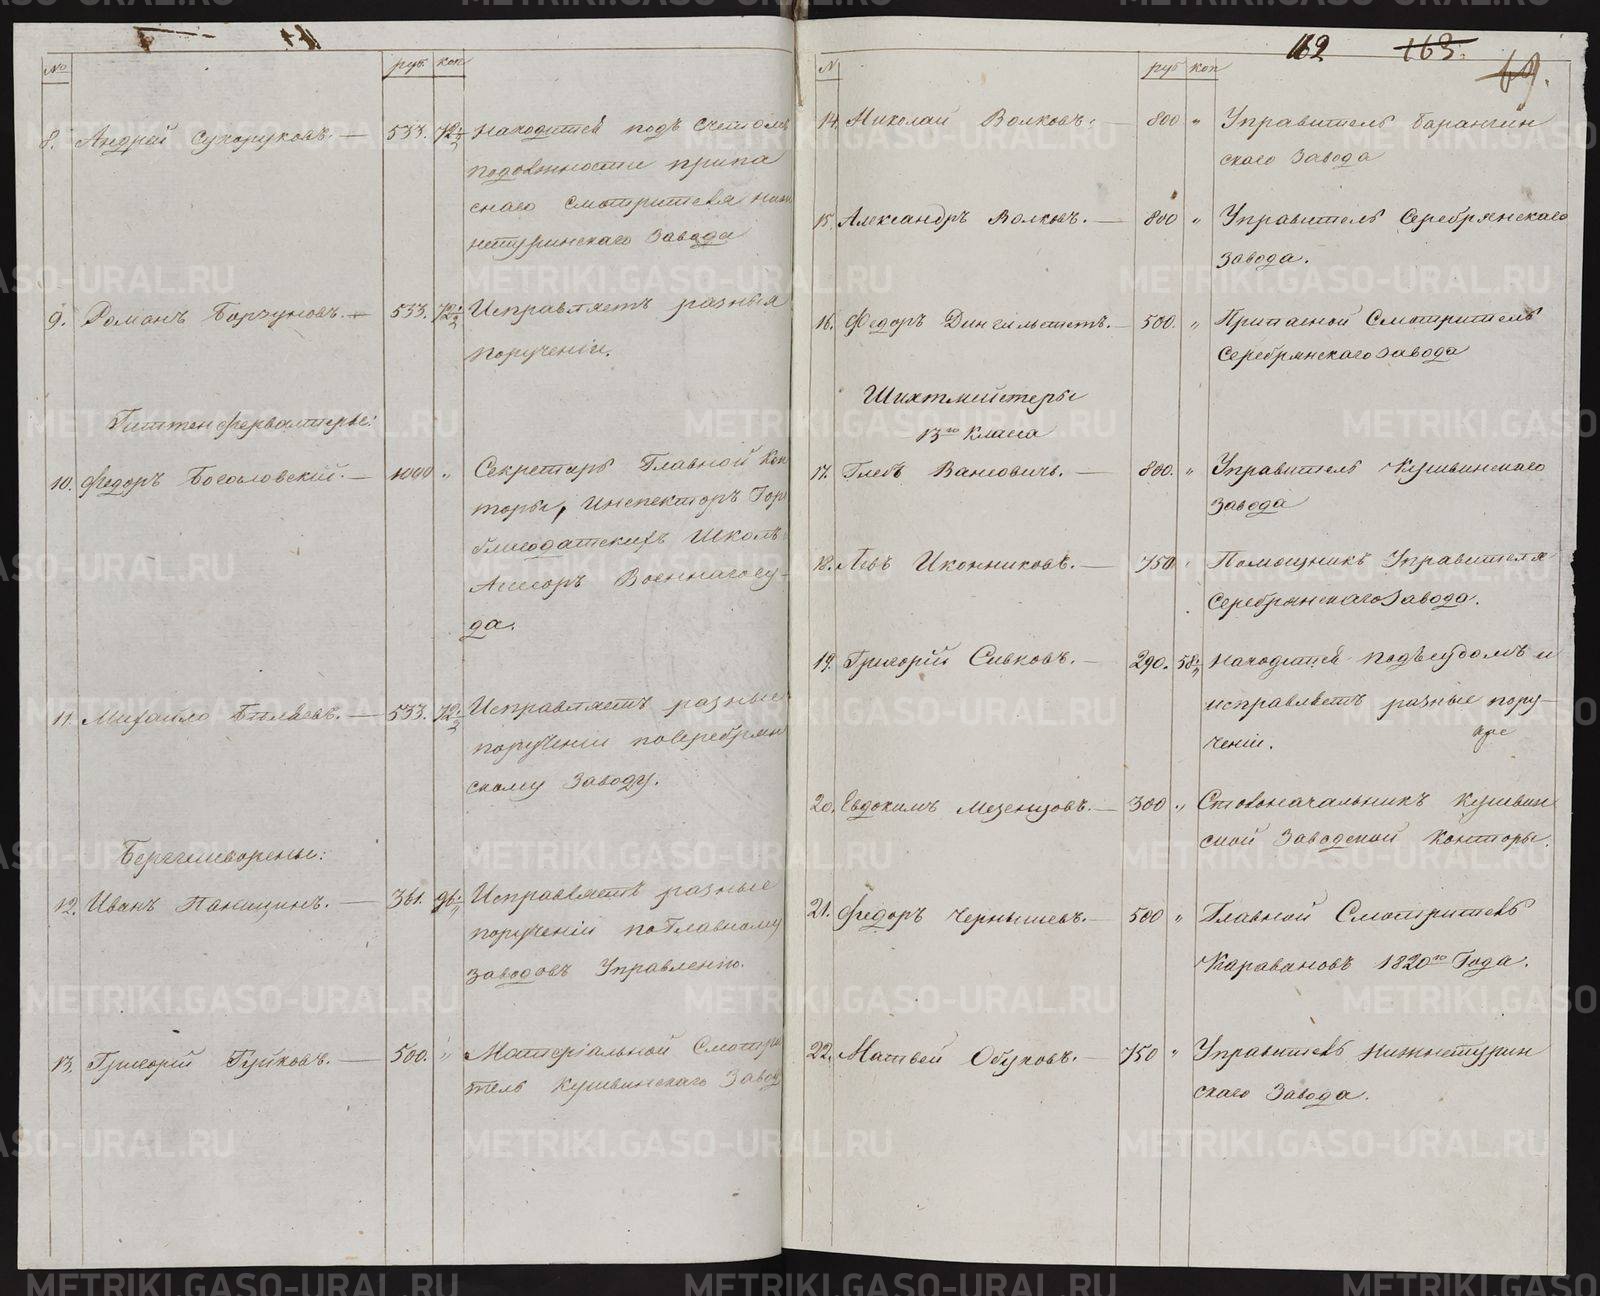 № руб коп
8. Андрей Сухоруковъ. — 533. 72 находится подъ счетомъ
подолжности припа
снаго смотрителя ниж
нетуринскаго Завода
9. Романъ Борзуновъ. — 533. 72 Исправляетъ разныя
порученіи.
Гиттенфервалтеры:
10. Федоръ Богословскій. — 1000 „ Секретарь Главной Кон
торы, Инспекторъ Горо
благодатскихъ Школъ
Асесоръ Военнагосу-
да.
11. Михайло Бѣляевъ. — 533. 72 Исправляетъ разные
порученіи поСеребрян
скому Заводу.
Берггешворены:
12. Иванъ Паньшинъ. — 361. 96 Исправляетъ разные
порученіи поГлавному
Заводовъ Управленію.
13. Григорій Гуйковъ. — 500. „ Матеріальной Смотри
тель Кушвинскаго Завод
162 163.
N руб коп
14. Николай Волковъ. — 800 „ Управитель Баранчин
скаго Завода
15. Александръ Волковъ. — 800 „ Управитель Серебрянскаго
Завода.
16. Федоръ Дингильштетъ. — 500. „ Припасной Смотритель
Серебрянскаго Завода
Шихтмейстеры
13го Класа
17. Глебъ Вансовичъ. — 800. „ Управитель Кушвинскаго
Завода
18. Левъ Иконниковъ. — 750 „ Помощникъ Управителя
Серебрянскаго Завода.
19. Григорій Сивковъ. — 290. 58 находится подъ судомъ и
исправляетъ разные пору-
ченіи.
20. Евдокимъ Мезенцовъ. — 300 „ Столоначальникъ Кушвин
ской Заводской Конторы.
21. Федоръ Чернышевъ. — 500 „ Главной Смотритель
Каравановъ 1820го Года.
22. Матвей Обуховъ. — 750 „ Управитель Нижнетурин
скаго Завода.
METRIKI.GASO-URAL.RU